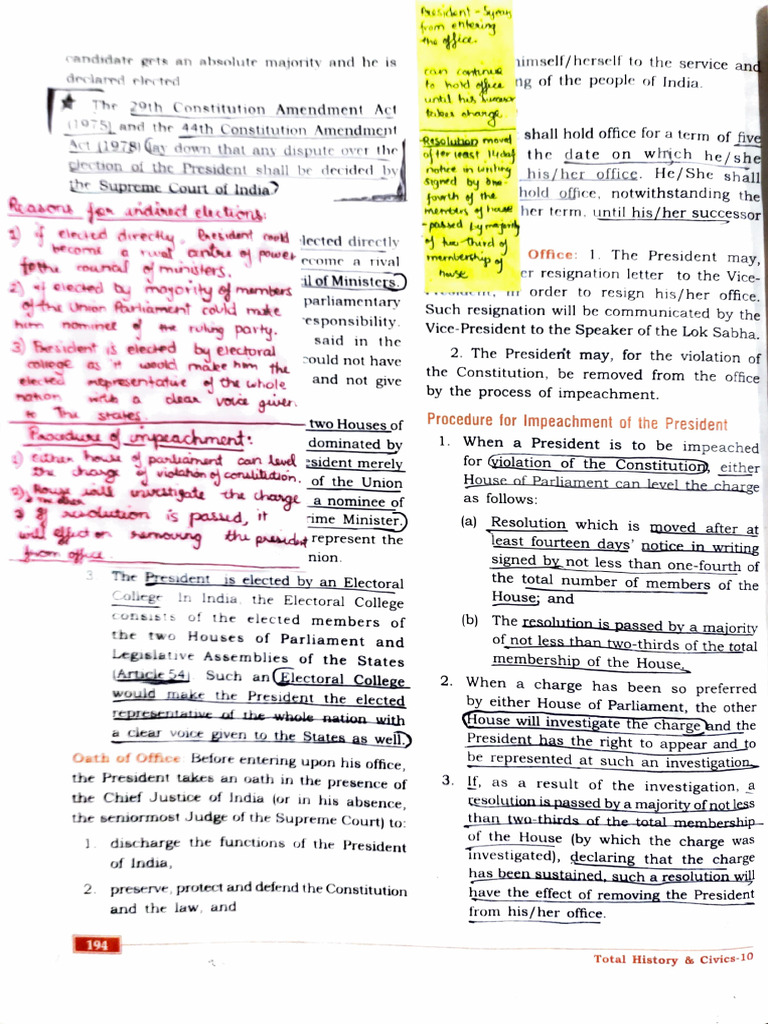 candidate gets an absolute majority and he is
declared elected
★ The 29th Constitution Amendment Act
(1975) and the 44th Constitution Amendment
Act (1978) lay down that any dispute over the
election of the President shall be decided by
the Supreme Court of India.
Reasons for indirect elections:
1) if elected directly, President could
become a rival centre of power
to the council of ministers.
2) if elected by majority of members
of the Union Parliament could make
him nominee of the ruling party.
3) President is elected by electoral
college as it would make him the
elected representative of the whole
nation with a clear voice given
to The states.
Procedure of impeachment:
1) either house of parliament can level
the charge of violation of constitution.
2) House will investigate the charge
3) if resolution is passed, it
will effect on removing the president
from office.
elected directly
ecome a rival
il of Ministers.
parliamentary
responsibility.
said in the
could not have
and not give
two Houses of
dominated by
esident merely
of the Union
a nominee of
rime Minister.
represent the
nion.
3. The President is elected by an Electoral
College In India, the Electoral College
consists of the elected members of
the two Houses of Parliament and
Legislative Assemblies of the States
(Article 54) Such an Electoral College
would make the President the elected
representative of the whole nation with
a clear voice given to the States as well.
Oath of Office: Before entering upon his office,
the President takes an oath in the presence of
the Chief Justice of India (or in his absence,
the seniormost Judge of the Supreme Court) to:
1. discharge the functions of the President
of India,
2. preserve, protect and defend the Constitution
and the law, and
President -
from entering
the office.
can continue
to hold office
until his successor
takes charge.
Resolution moved
after least 14 day
notice in writing
signed by one-
fourth of the
members of house
- passed by majority
of two third of
membership of
house
himself/herself to the service and
ng of the people of India.
shall hold office for a term of five
the date on which he/she
his/her office. He/She shall
hold office, notwithstanding the
her term, until his/her successor
Office: 1. The President may,
er resignation letter to the Vice-
President, in order to resign his/her office.
Such resignation will be communicated by the
Vice-President to the Speaker of the Lok Sabha.
2. The President may, for the violation of
the Constitution, be removed from the office
by the process of impeachment.
Procedure for Impeachment of the President
1. When a President is to be impeached
for violation of the Constitution, either
House of Parliament can level the charge
as follows:
(a) Resolution which is moved after at
least fourteen days' notice in writing
signed by not less than one-fourth of
the total number of members of the
House; and
(b) The resolution is passed by a majority
of not less than two-thirds of the total
membership of the House.
2. When a charge has been so preferred
by either House of Parliament, the other
House will investigate the charge and the
President has the right to appear and to
be represented at such an investigation.
3. If, as a result of the investigation, a
resolution is passed by a majority of not less
than two-thirds of the total membership
of the House (by which the charge was
investigated), declaring that the charge
has been sustained, such a resolution will
have the effect of removing the President
from his/her office.
194
Total History & Civics-10